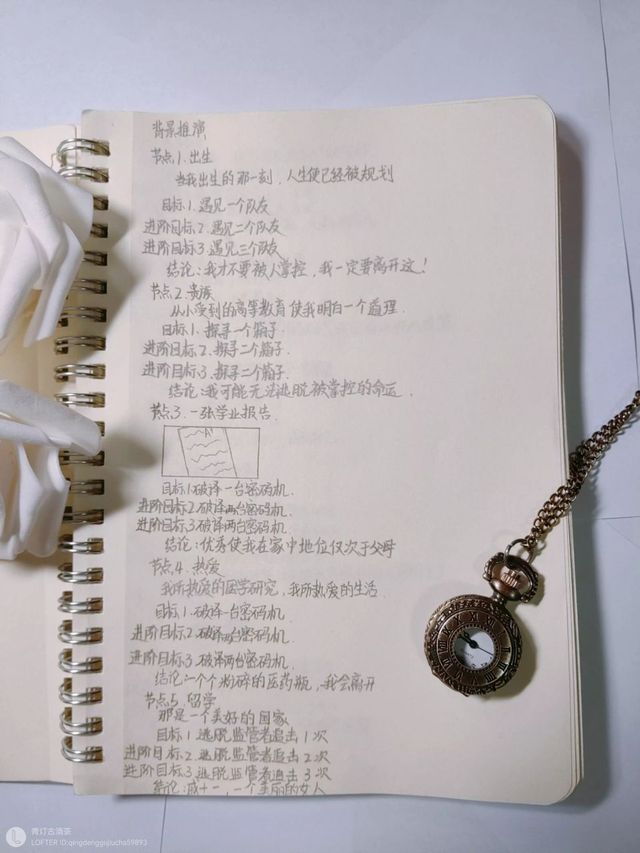 背景推演
节点1.出生
当我出生的那一刻，人生便已经被规划
目标1.遇见一个队友
进阶目标2.遇见二个队友
进阶目标3.遇见三个队友
结论:我才不要被人掌控，我一定要离开这！
节点2.贵族
从小受到的高等教育使我明白一个道理.
目标1.探寻一个箱子.
进阶目标2.探寻二个箱子.
进阶目标3.探寻二个箱子.
结论:我可能无法逃脱被掌控的命运.
节点3.一张学业报告.
目标1.破译一台密码机.
进阶目标2.破译两台密码机.
进阶目标3.破译两台密码机.
结论:优秀使我在家中地位仅次于父母
节点4.热爱
我所热爱的医学研究，我所热爱的生活.
目标1.破译一台密码机.
进阶目标2.破译两台密码机.
进阶目标3.破译两台密码机.
结论:一个个粉碎的医药瓶，我会离开
节点5.留学
那是一个美好的国家
目标1.逃脱监管者追击1次
进阶目标2.逃脱监管者追击2次
进阶目标3.逃脱监管者追击3次
结论: 一个美丽的女人
青灯古酒茶
LOFTER ID:qingdenggujiucha59893